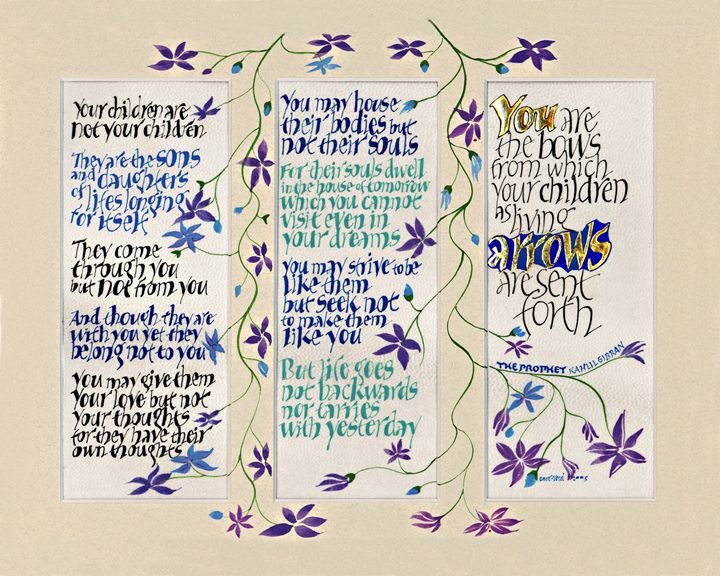 Your children are
not your children
They are the sons
and daughters
of lifes longing
for itself
They come
through you
but not from you
And though they are
with you yet they
belong not to you
You may give them
Your love but not
your thoughts
for they have their
own thoughts
You may house
their bodies but
not their souls
For their souls dwell
in the house of tomorrow
which you cannot
visit even in
your dreams
You may strive to be
like them
but seek not
to make them
like you
But life goes
not backwards
nor tarries
with yesterday
You are
the bows
from which
your children
as living
arrows
are sent
forth
THE PROPHET KAHLIL GIBRAN
2005